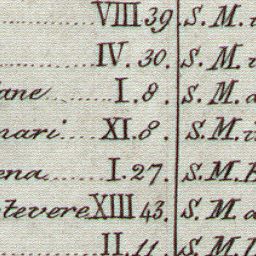 VIII 39 S. M.
IV. 30. S. M.
ane I. 8. S. M.
nari XI. 8. S. M.
ena I. 27. S. M.
tevere XIII 43. S. M.
II. 11. S. M.